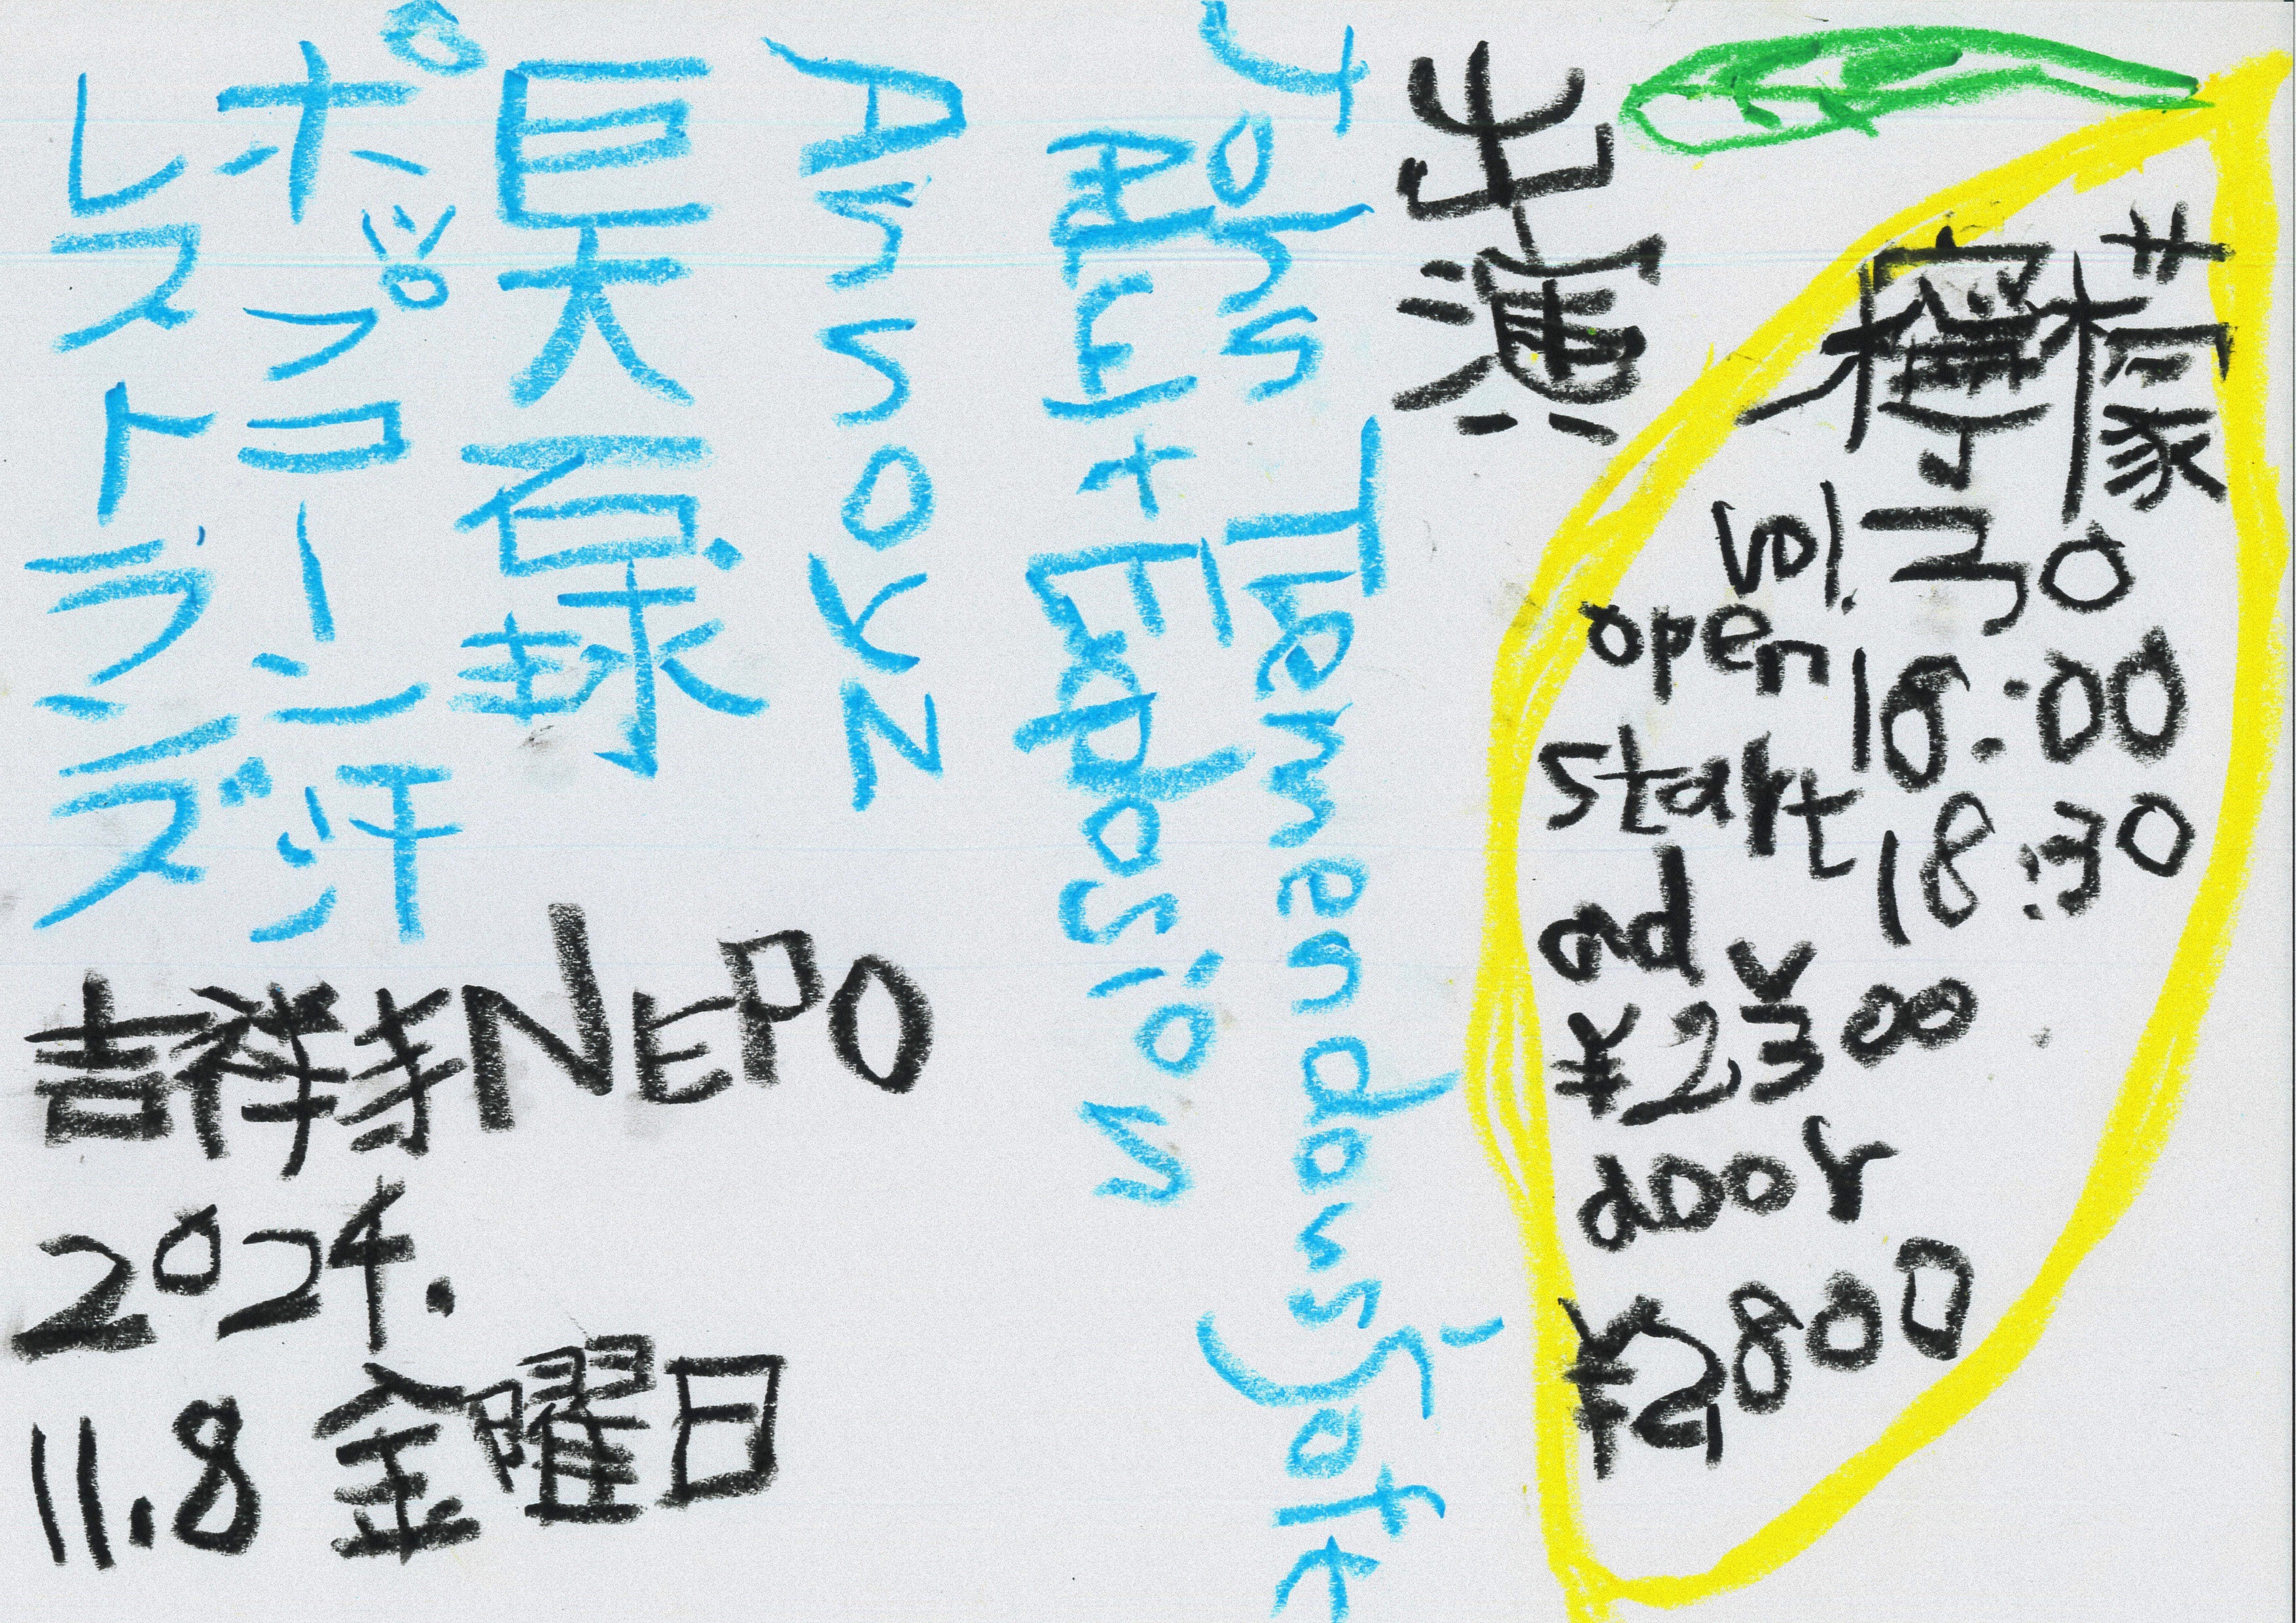 檸檬
vol.30
open 18:00
start 18:30
adv
¥2300
door
¥2800
出演
John Tremendous' Soft
Adult Explosion
Annoyz
巨大百球
ポップコーン汗
レストランズ
吉祥寺NEPO
2024.
11.8 金曜日